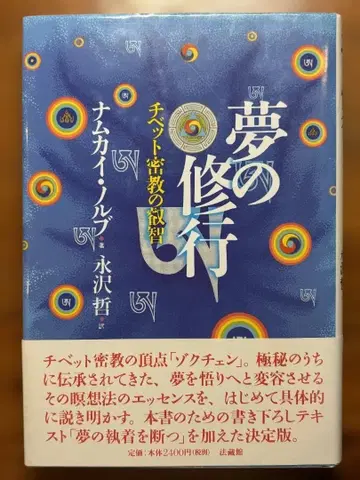 夢の修行
チベット密教の叡智
ナムカイ・ノルブ・著
永沢哲・訳
チベット密教の頂点「ゾクチェン」。極秘のうち
に伝承されてきた、夢を悟りへと変容させる
その瞑想法のエッセンスを、はじめて具体的
に説き明かす。本書のための書き下ろしテキ
スト「夢の執着を断つ」を加えた決定版。
定価：本体2400円(税別) 法藏館